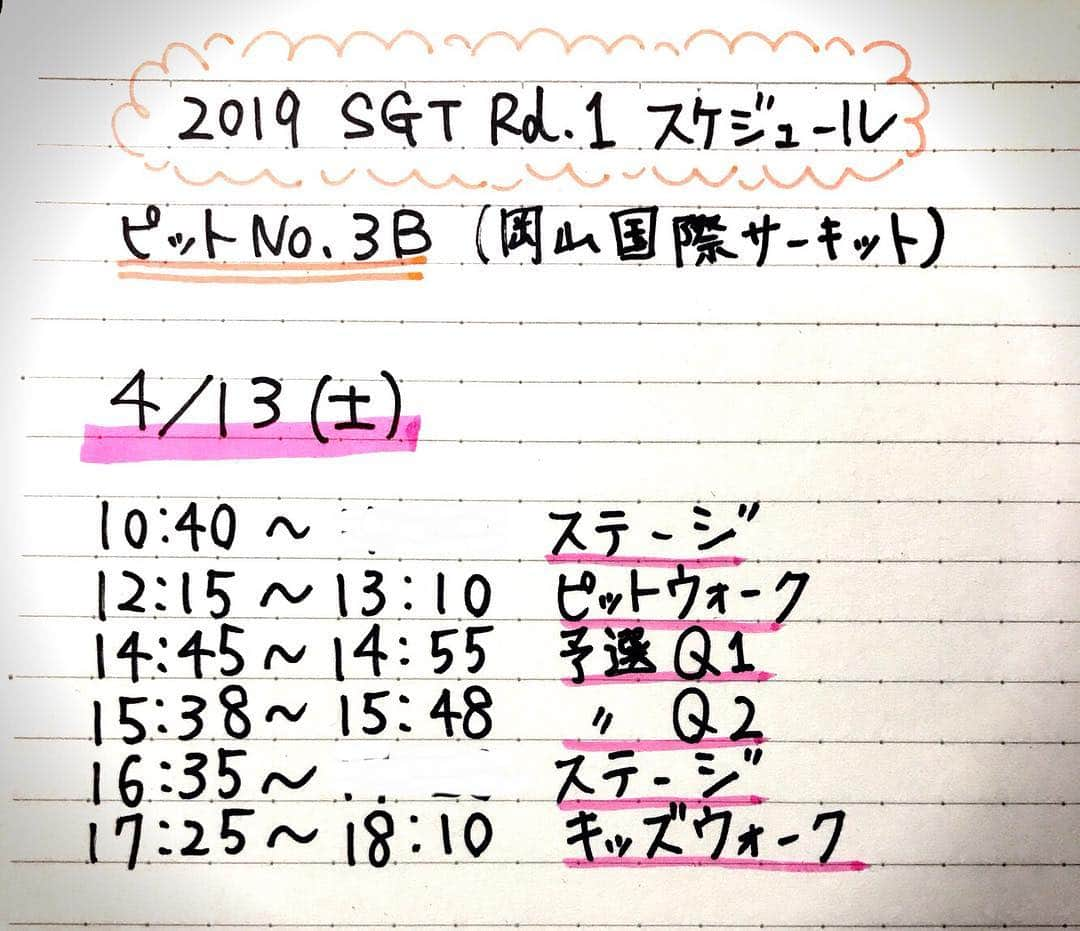 2019 SGT Rd.1 スケジュール
ピットNo.3B (岡山国際サーキット)
4/13(土)
10:40～ ステージ
12:15～13:10 ピットウォーク
14:45～14:55 予選 Q1
15:38～15:48 〃 Q2
16:35～ ステージ
17:25～18:10 キッズウォーク